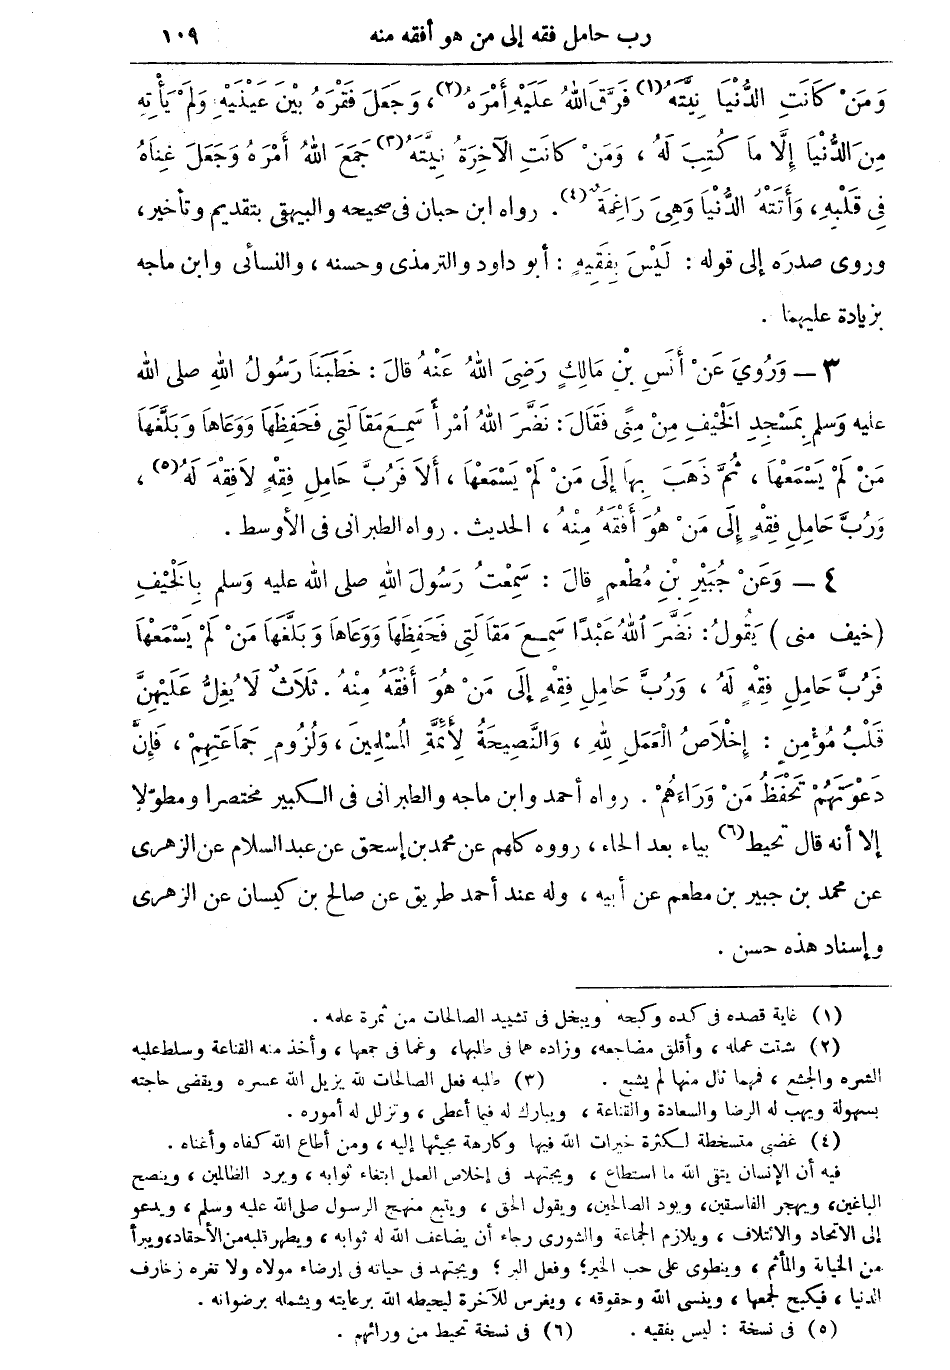 رب حامل فقه إلى من هو أفقه منه ١٠٩
وَمَنْ كَانَتِ الدُّنْيَا نِيَّتَهُ(١) فَرَّقَ اللهُ عَلَيْهِ أَمْرَهُ(٢)، وَجَعَلَ فَقْرَهُ بَيْنَ عَيْنَيْهِ وَلَمْ يَأْتِهِ
مِنَ الدُّنْيَا إِلَّا مَا كُتِبَ لَهُ ، وَمَنْ كَانَتِ الْآخِرَةُ نِيَّتَهُ(٣) جَمَعَ اللهُ أَمْرَهُ وَجَعَلَ غِنَاهُ
فِي قَلْبِهِ، وَأَتَتْهُ الدُّنْيَا وَهِيَ رَاغِمَةٌ(٤). رواه ابن حبان فى صحيحه والبيهقى بتقديم وتأخير،
وروى صدره إلى قوله : لَيْسَ بِفَقِيهٍ : أبو داود والترمذى وحسنه ، والنسائى وابن ماجه
بزيادة عليهما .
٣ — وَرُوِيَ عَنْ أَنَسِ بْنِ مَالِكٍ رَضِيَ اللهُ عَنْهُ قَالَ : خَطَبَنَا رَسُولُ اللهِ صلى الله
عليه وَسلم بِمَسْجِدِ الْخَيْفِ مِنْ مِنًى فَقَالَ : نَضَّرَ اللهُ امْرأً سَمِعَ مَقَالَتِي فَحَفِظَهَا وَوَعَاهَا وَبَلَّغَهَا
مَنْ لَمْ يَسْمَعْهَا ، ثُمَّ ذَهَبَ بِهَا إِلَى مَنْ لَمْ يَسْمَعْهَا ، أَلَا فَرُبَّ حَامِلِ فِقْهٍ لَا فِقْهَ لَهُ(٥) ،
وَرُبَّ حَامِلِ فِقْهٍ إِلَى مَنْ هُوَ أَفْقَهُ مِنْهُ ، الحديث . رواه الطبرانى فى الأوسط .
٤ — وَعَنْ جُبَيْرِ بْنِ مُطْعِمٍ قالَ : سَمِعْتُ رَسُولَ اللهِ صلى الله عليه وسلم بِالْخَيْفِ
(خيف منى) يَقُولُ: نَضَّرَ اللهُ عَبْدًا سَمِعَ مَقَالَتِي فَحَفِظَهَا وَوَعَاهَا وَبَلَّغَهَا مَنْ لَمْ يَسْمَعْهَا
فَرُبَّ حَامِلِ فِقْهٍ لَهُ ، وَرُبَّ حَامِلِ فِقْهٍ إِلَى مَنْ هُوَ أَفْقَهُ مِنْهُ . ثَلَاثٌ لَا يُغِلُّ عَلَيْهِنَّ
قَلْبُ مُؤْمِنٍ : إِخْلَاصُ الْعَمَلِ لِلَّهِ ، وَالنَّصِيحَةُ لِأَئِمَّةِ الْمُسْلِمِينَ ، وَلُزُومِ جَمَاعَتِهِمْ ، فَإِنَّ
دَعْوَتَهُمْ تَحْفَظُ مَنْ وَرَاءَهُمْ . رواه أحمد وابن ماجه والطبرانى فى الكبير مختصرا ومطوّلا
إلا أنه قال تحيط(٦) بياء بعد الحاء ، رووه كلهم عن محمد بن إسحق عن عبد السلام عن الزهرى
عن محمد بن جبير بن مطعم عن أبيه ، وله عند أحمد طريق عن صالح بن كيسان عن الزهرى
وإسناد هذه حسن .
(١) غاية قصده فى كده وكبحه ويبخل فى تشييد الصالحات من ثمرة علمه .
(٢) شتت عمله ، وأقلق مضاجعه، وزاده هما فى طلبها، وغما فى جمعها ، وأخذ منه القناعة وسلط عليه
الشره والجشع ، فمهما نال منها لم يشبع . (٣) طلبه فعل الصالحات لله يزيل الله عسره ويقضى حاجته
بسهولة ويهب له الرضا والسعادة والقناعة ، ويبارك له فيما أعطى ، وتزلل له أموره .
(٤) غضبى متسخطة لكثرة خيرات الله فيها وكارهة مجيئها إليه ، ومن أطاع الله كفاه وأغناه .
فيه أن الإنسان يتقى الله ما استطاع ، ويجتهد فى إخلاص العمل ابتغاء ثوابه ، ويرد الظالمين ، وينصح
الباغين، ويهجر الفاسقين، ويود الصالحين، ويقول الحق ، ويتبع منهج الرسول صلى الله عليه وسلم ، ويدعو
إلى الاتحاد والائتلاف ، ويلازم الجماعة والشورى رجاء أن يضاعف الله له ثوابه ، ويطهر قلبه من الأحقاد، ويبرأ
من الخيانة والمآثم ، وينطوى على حب الخير؛ وفعل البر ؛ ويجتهد فى حياته فى إرضاء مولاه ولا تغره زخارف
الدنيا ، فيكبح لجمعها ، وينسى الله وحقوقه ، ويغرس للآخرة ليحيطه الله برعايته ويشمله برضوانه .
(٥) فى نسخة : ليس بفقيه . (٦) فى نسخة تحيط من ورائهم .